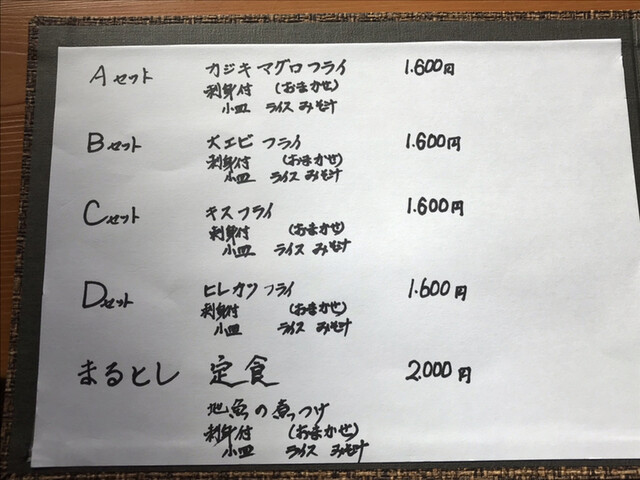 Aセット カジキマグロフライ 1.600円
刺身付 (おまかせ)
小皿 ライス みそ汁
Bセット 大エビフライ 1.600円
刺身付 (おまかせ)
小皿 ライス みそ汁
Cセット キスフライ 1.600円
刺身付 (おまかせ)
小皿 ライス みそ汁
Dセット ヒレカツフライ 1.600円
刺身付 (おまかせ)
小皿 ライス みそ汁
まるとし 定食 2.000円
地魚の煮つけ
刺身付 (おまかせ)
小皿 ライス みそ汁